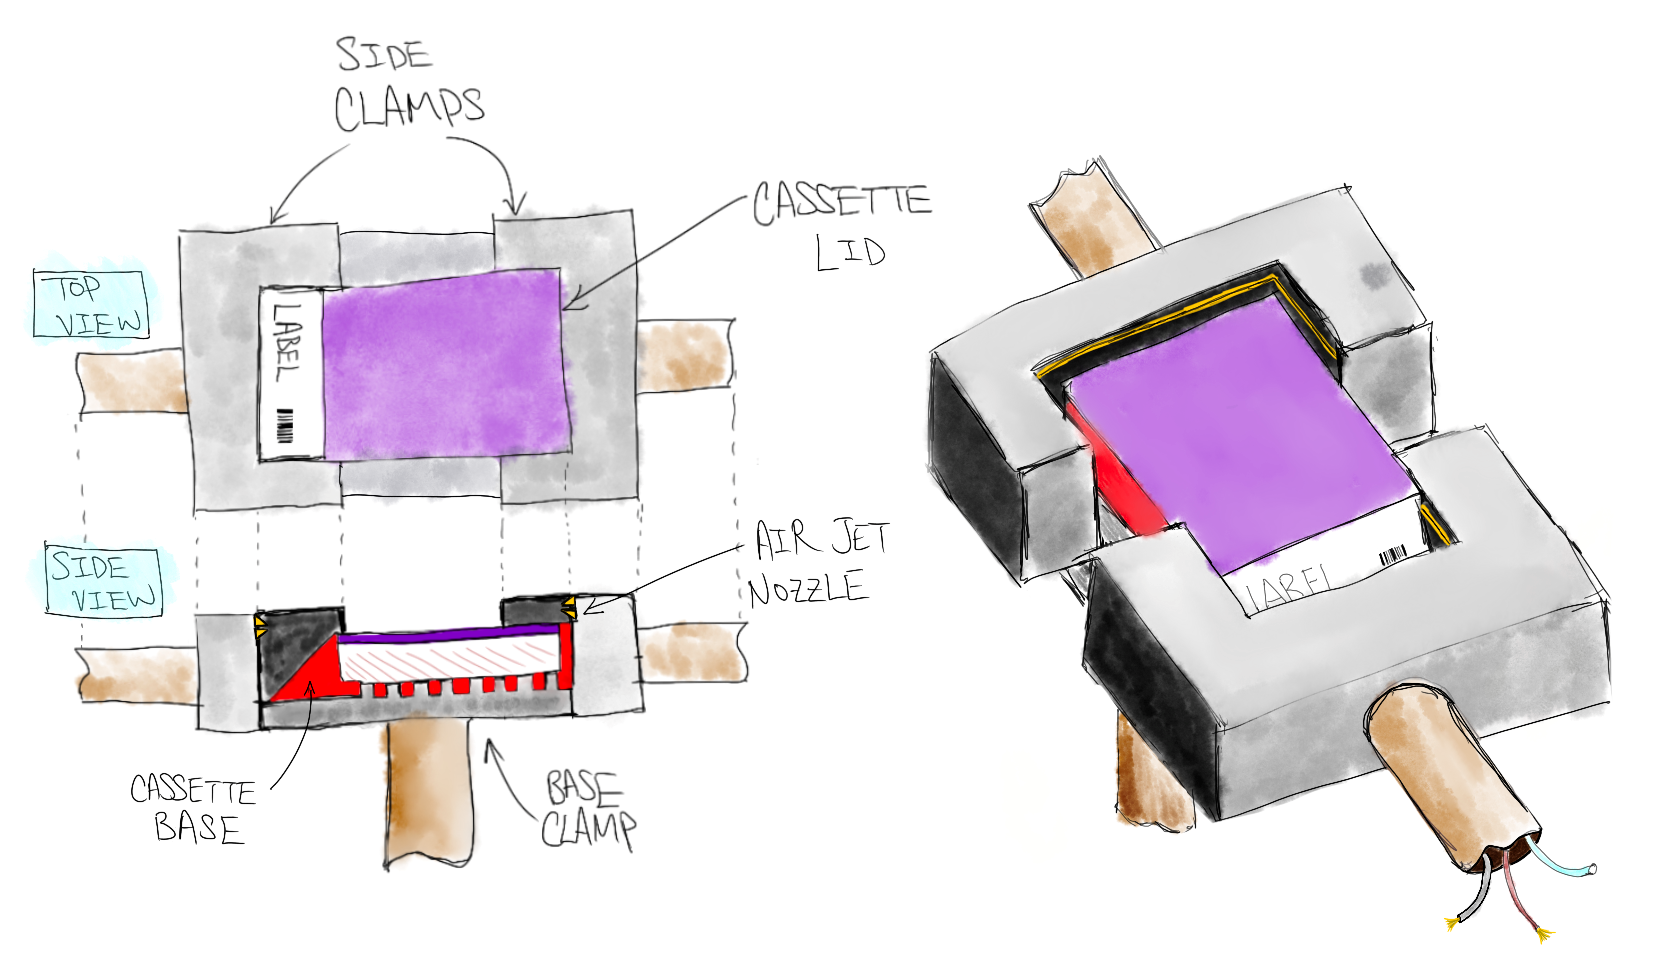 SIDE
CLAMPS
CASSETTE
LID
TOP
VIEW
LABEL
SIDE
VIEW
AIR JET
NOZZLE
CASSETTE
BASE
BASE
CLAMP
LABEL